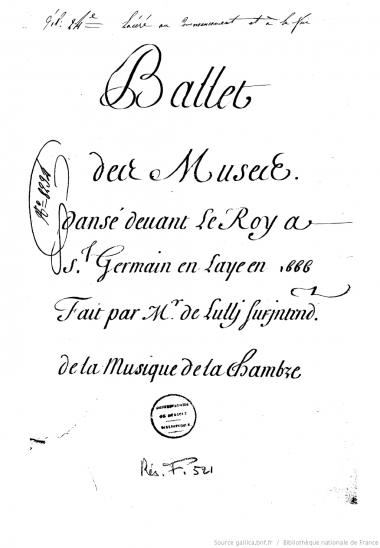 Lacéré au commencement et à la fin
Ballet
des Muses.
dansé deuant Le Roy a
S.t Germain en Laye en 1666
Fait par M.r de Lully surjntend.
de la Musique de la Chambre
CONSERVATOIRE
DE MUSIQUE
BIBLIOTHÈQUE
Rés. F. 521
Source gallica.bnf.fr / Bibliothèque nationale de France